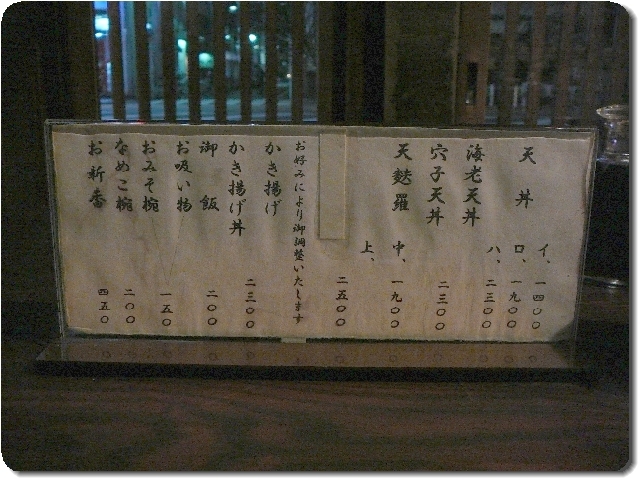 天丼 イ、一四〇〇
ロ、一九〇〇
ハ、二三〇〇
海老天丼
穴子天丼 二三〇〇
天麩羅 中、一九〇〇
上、二五〇〇
お好みにより御調整いたします
かき揚げ
かき揚げ丼 二三〇〇
御飯 二〇〇
お吸い物
おみそ椀 一五〇
なめこ椀 二〇〇
お新香 四五〇